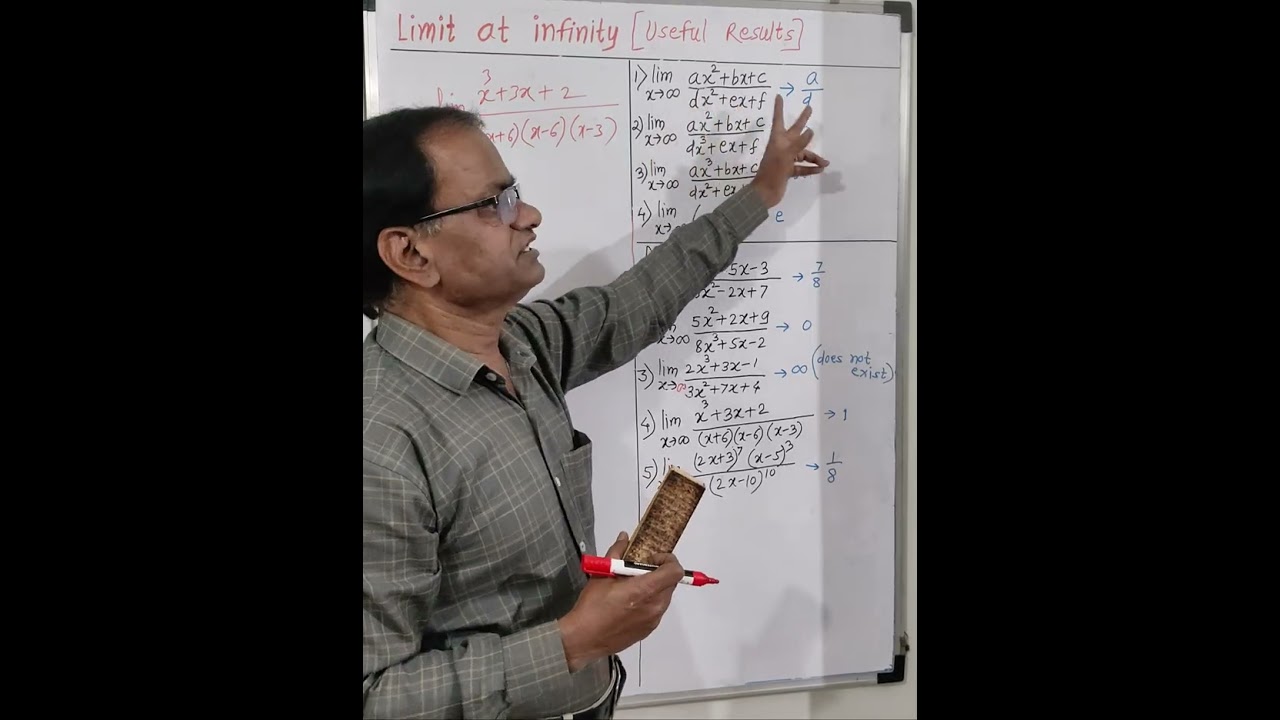 Limit at infinity [Useful Results]
x³+3x+2
x+6)(x-6)(x-3)
1) lim x→∞ (ax²+bx+c)/(dx²+ex+f) → a/d
2) lim x→∞ (ax²+bx+c)/(dx³+ex+f)
3) lim x→∞ (ax³+bx+c)/(dx²+ex
4) lim x→∞ ( e
5x-3 / x²-2x+7 → 7/8
x→∞ (5x²+2x+9)/(8x³+5x-2) → 0
3) lim x→∞ (2x³+3x-1)/(3x²+7x+4) → ∞ (does not exist)
4) lim x→∞ (x³+3x+2)/((x+6)(x-6)(x-3)) → 1
5) (2x+3)⁷(x-5)³/(2x-10)¹⁰ → 1/8